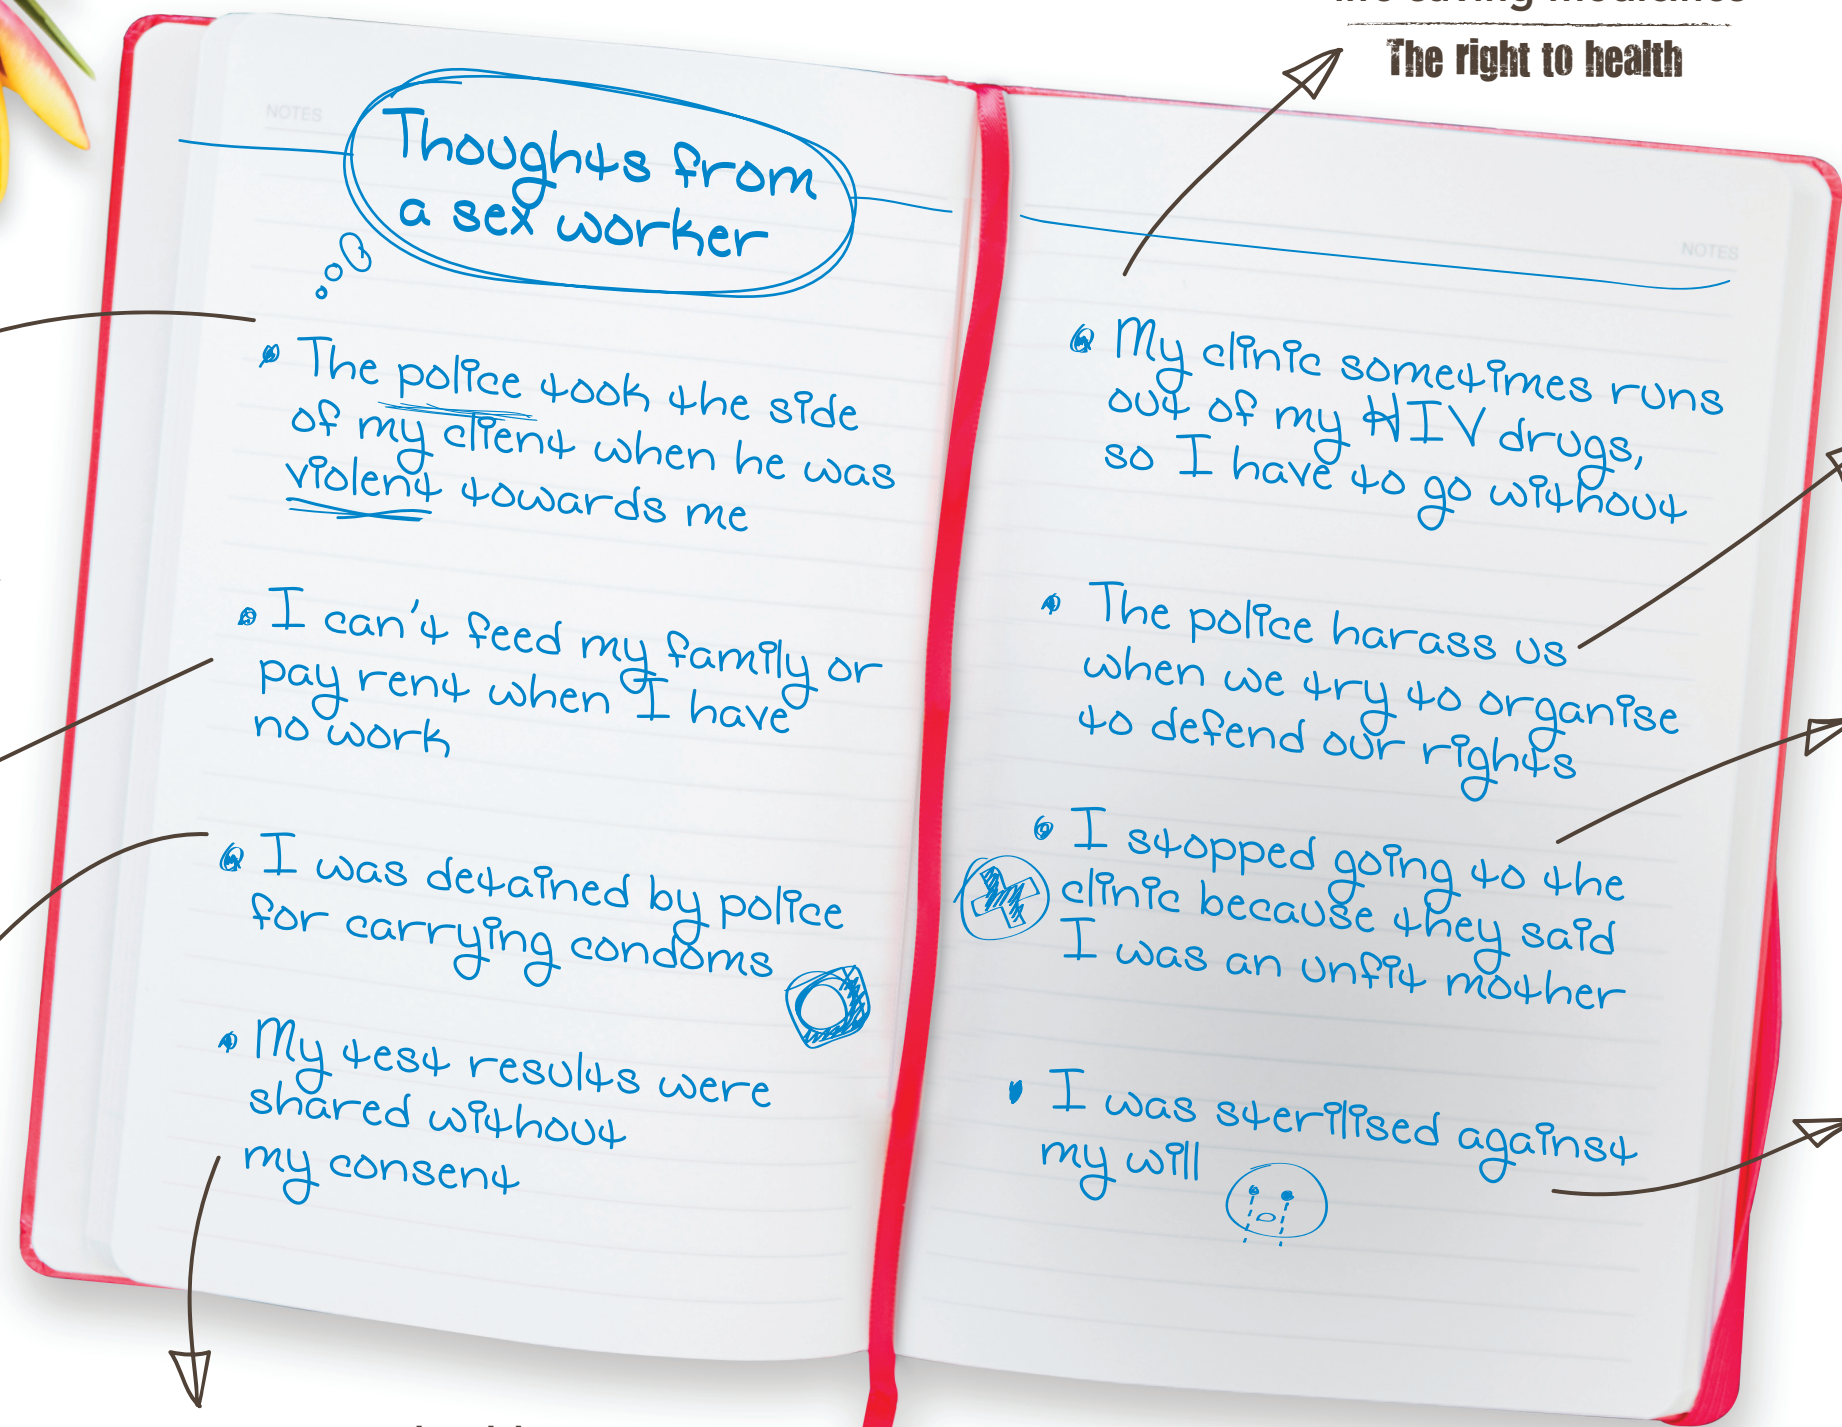 The right to health
NOTES
Thoughts from
a sex worker
The police took the side
of my client when he was
violent towards me
I can't feed my family or
pay rent when I have
no work
I was detained by police
for carrying condoms
My test results were
shared without
my consent
NOTES
My clinic sometimes runs
out of my HIV drugs,
so I have to go without
The police harass us
when we try to organise
to defend our rights
I stopped going to the
clinic because they said
I was an unfit mother
I was sterilised against
my will